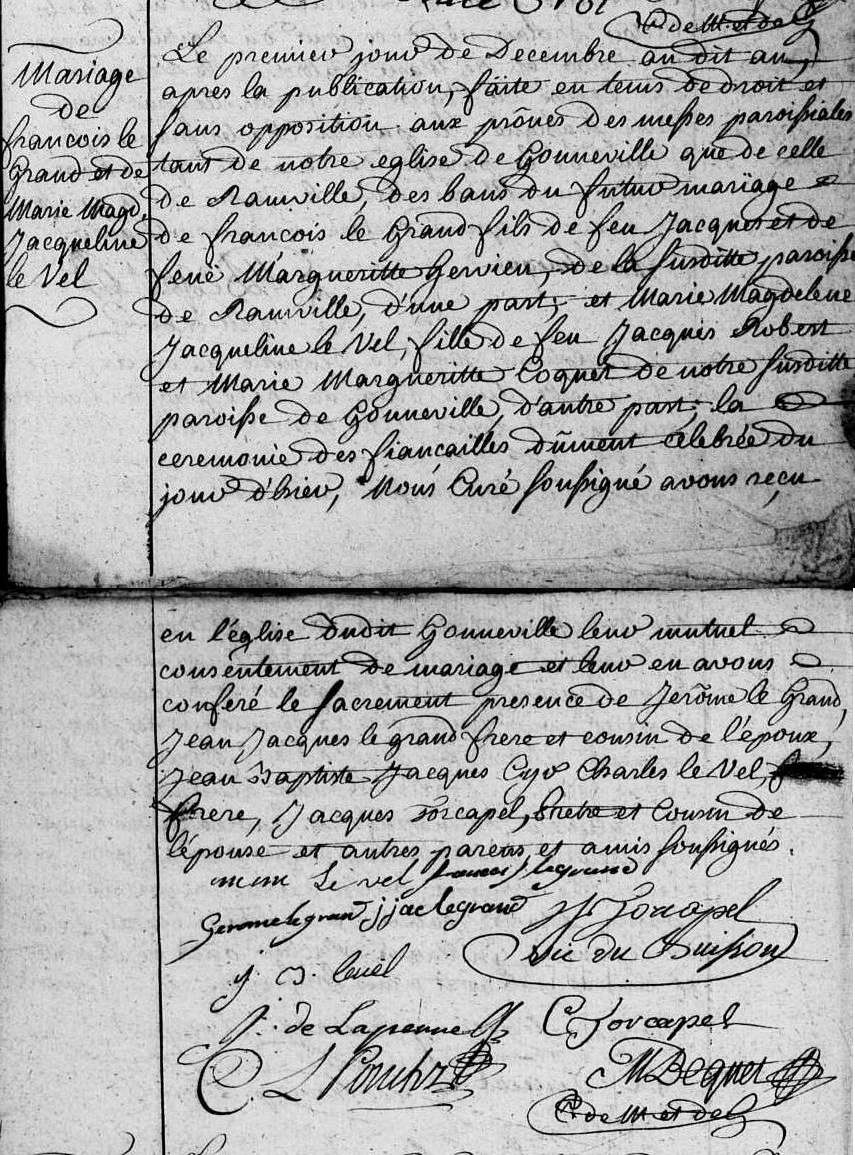 C. de M. et de G
Mariage
de
francois le
Grand et de
Marie Magd.
Jacqueline
le Vel
Le premier jour de Decembre an dit an,
apres la publication, faite en tems de droit et
sans opposition aux prônes des messes paroissiales
tant de notre eglise de Gonneville que de celle
de Ranville, des bans du futur mariage
de francois le Grand fils de feu Jacques et de
feuë Margueritte Hervieu, de la susditte paroisse
de Ranville, d'une part; et Marie Magdelene
Jacqueline le Vel, fille de feu Jacques Robert
et Marie Margueritte Coquet de notre susditte
paroisse de Gonneville, d'autre part; la
ceremonie des fiancailles dûment célebrée du
jour d'hier, Nous Curé soussigné avons reçu
en l'église dudit Gonneville leur mutuel
consentement de mariage et leur en avons
conferé le sacrement presence de Jerôme le Grand,
Jean Jacques le grand frere et cousin de l'époux,
Jean Baptiste Jacques Cyr Charles le Vel,
frere, Jacques Forcapel, bretre et Cousin de
l'épouse et autres parens et amis soussignés.
m m j Le vel francois legrand
Gerome legrand j jac legrand J Forcapel
vic du Buisson
j. B. levél
J. de Laperrelle C Forcapel
M Dequet
C. de M et de G